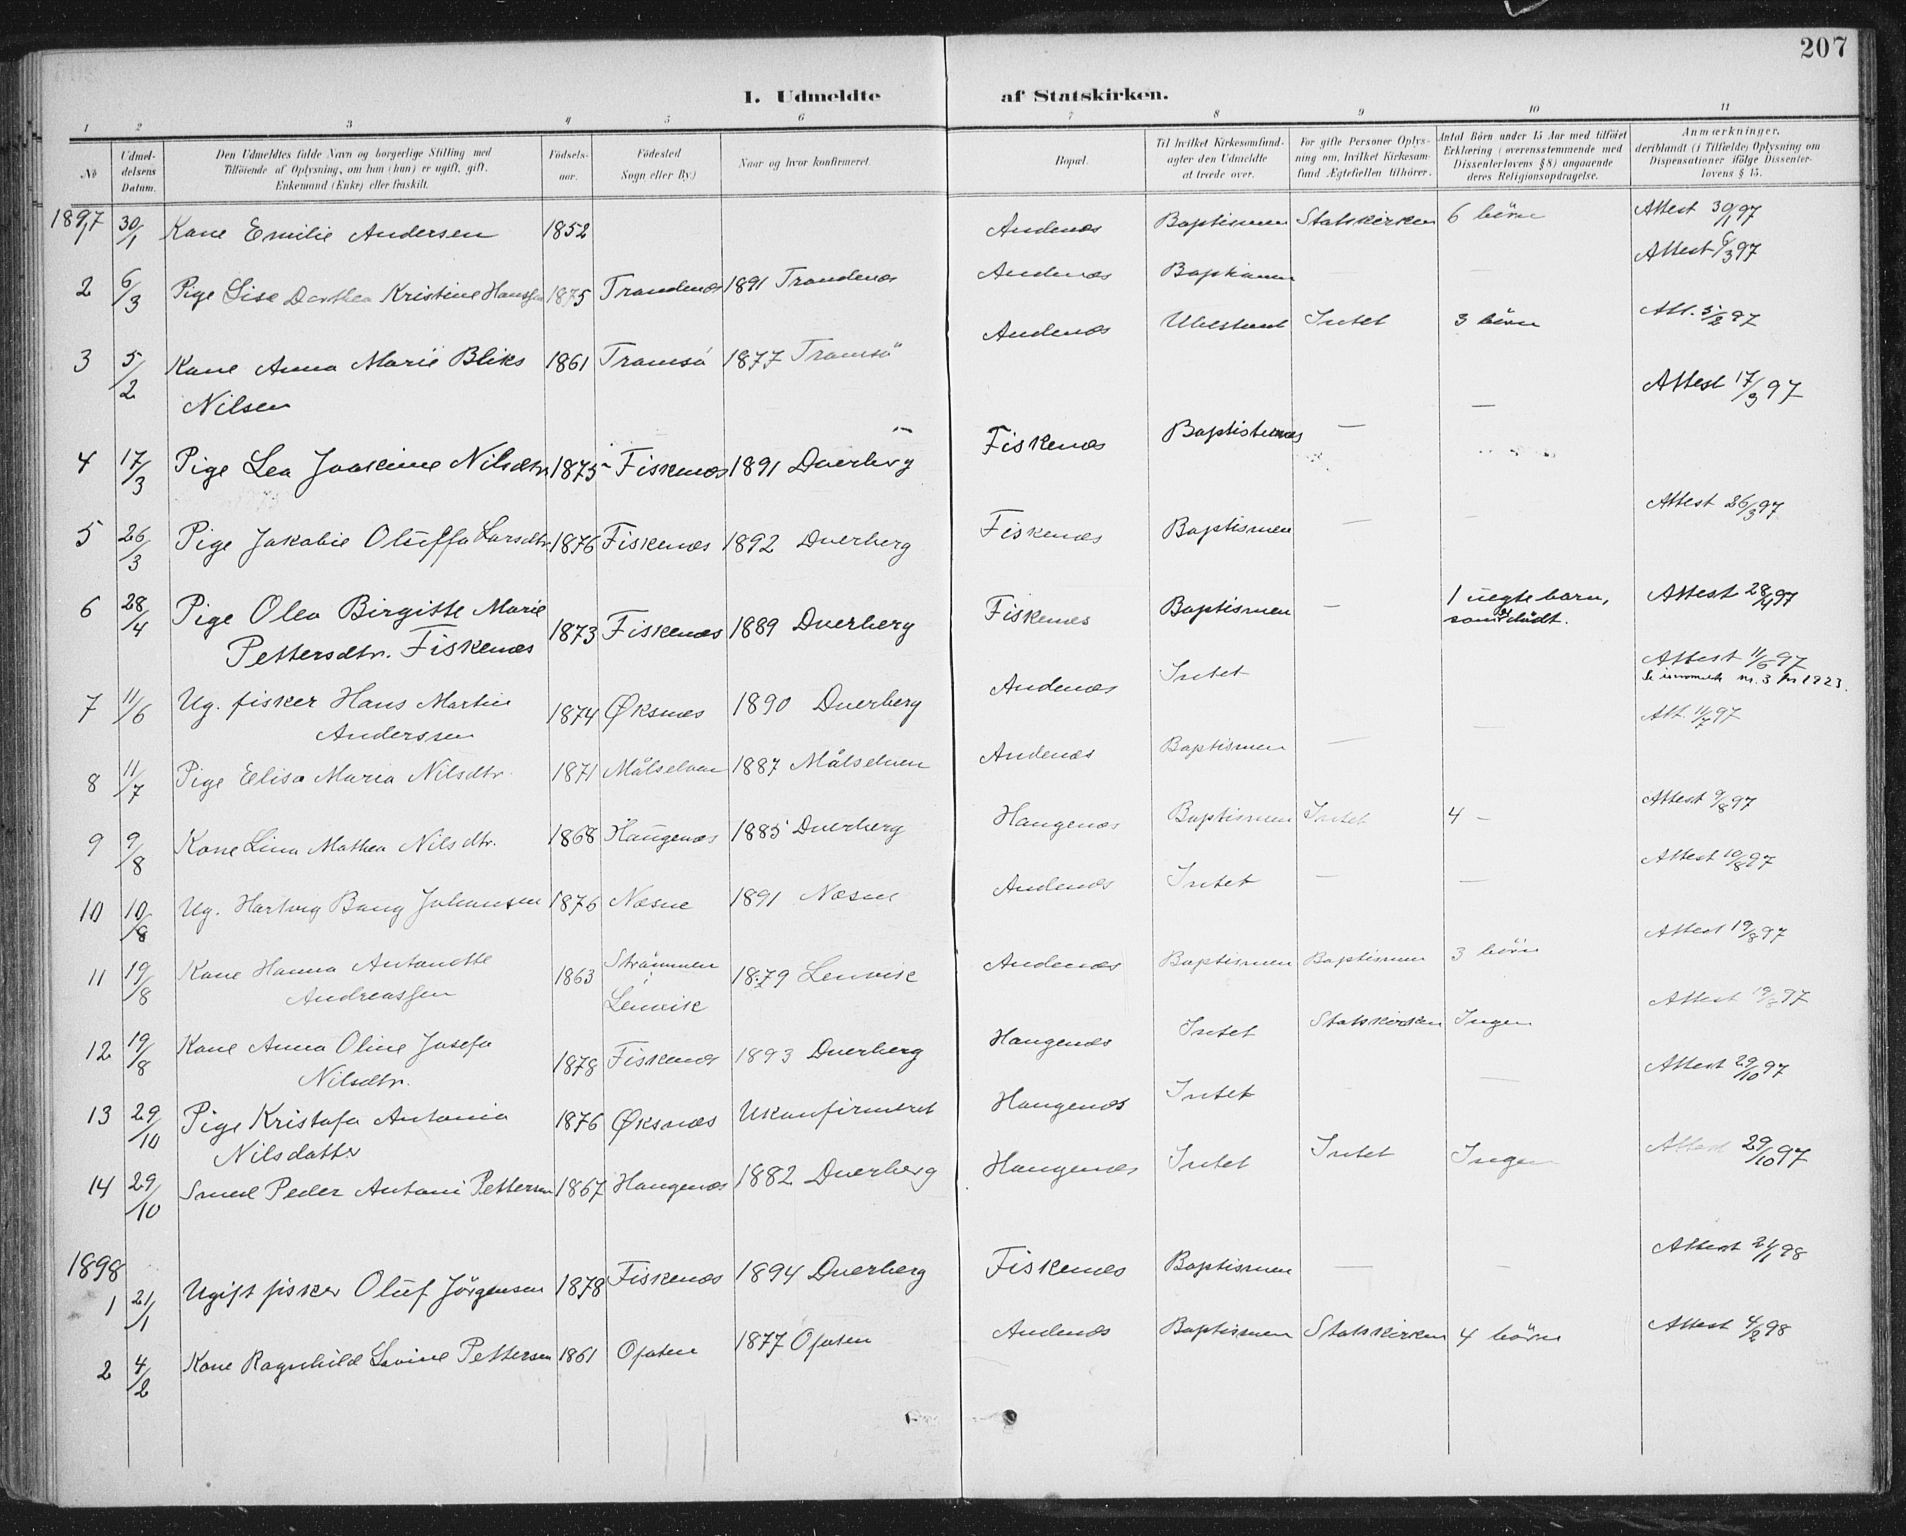 207
I. Udmeldte af Statskirken.
1 2 3 4 5 6 7 8 9 10 11
No
Udmeldelsens Datum.
Den Udmeldtes fulde Navn og borgerlige Stilling med
Tilföiende af Oplysning, om han (hun) er ugift, gift,
Enkemand (Enke) eller fraskilt.
Födselsaar.
Födested
Sogn eller By.)
Naar og hvor konfirmeret.
Bopæl.
Til hvilket Kirkesamfund-
agter den Udmeldte
at træde over.
For gifte Personer Oplys-
ning om, hvilket Kirkesam-
fund Ægtefællen tilhörer.
Antal Börn under 15 Aar med tilföiet
Erklæring (overensstemmende med
Dissenterlovens § 8) angaaende
deres Religionsopdragelse.
Anmærkninger,
deriblandt (i Tilfælde) Oplysning om
Dispensationer ifölge Dissenter-
lovens § 15.
1897
1 30/1 Kone Emilie Andersen 1852 Andenæs Baptismen Statskirken 6 börn Attest 30/1 97
2 6/3 Pige Lise Dorthea Kristine Hanssen 1875 Trondenæs 1891 Trondenæs Andenæs Baptismen — — Attest 6/3 97
3 5/2 Kone Anna Marie Bliks 1861 Tromsö 1877 Tromsö Andenæs Ubestemt Intet 3 börn Att. 5/2 97
Nilsen
4 17/3 Pige Lea Joakime Nilsdtr 1875 Fiskenæs 1891 Dverberg Fiskenæs Baptisternes — — Attest 17/3 97
5 26/3 Pige Jakobie Oluffa Larsdtr 1876 Fiskenæs 1892 Dverberg Fiskenæs Baptismen — — Attest 26/3 97
6 28/4 Pige Olea Birgitte Marie 1873 Fiskenæs 1889 Dverberg Fiskenæs Baptismen — 1 uegte barn, Attest 28/4 97
Pettersdtr. Fiskenæs som er dödt.
7 11/6 Ug. fisker Hans Martin 1874 Øksnæs 1890 Dverberg Andenæs Intet Attest 11/6 97
Anderssen Se innmeldt nr. 3 for 1923.
8 11/7 Pige Elisa Maria Nilsdtr. 1871 Målselven 1887 Målselven Andenæs Baptismen — — Att. 11/7 97
9 9/8 Kone Lina Mathea Nilsdtr. 1868 Haugenæs 1885 Dverberg Haugenæs Baptismen Intet 4 — Attest 9/8 97
10 10/8 Ug. Hartvig Bang Johansen 1876 Næsne 1891 Næsne Andenæs Intet — — Attest 10/8 97
11 19/8 Kone Hanna Antonette 1863 Strömmen 1879 Lenvik Andenæs Baptismen Baptismen 3 börn Attest 19/8 97
Andreassen Lenvik
12 19/8 Kone Anna Oline Josefa 1878 Fiskenæs 1893 Dverberg Haugenæs Intet Statskirken Ingen Attest 19/8 97
Nilsdtr.
13 29/10 Pige Kristofa Antonia 1876 Øksnæs Ukonfirmeret Haugenæs Intet — Attest 29/10 97
Nilsdatter
14 29/10 Smed Peder Antoni Pettersen 1867 Haugenæs 1882 Dverberg Haugenæs Intet Intet Ingen Attest 29/10 97
1898
1 21/1 Ugift fisker Oluf Jörgensen 1878 Fiskenæs 1894 Dverberg Fiskenæs Baptismen — — Attest 21/1 98
2 4/2 Kone Ragnhild Lovine Pettersen 1861 Ofoten 1877 Ofoten Andenæs Baptismen Statskirken 4 börn Attest 4/2 98